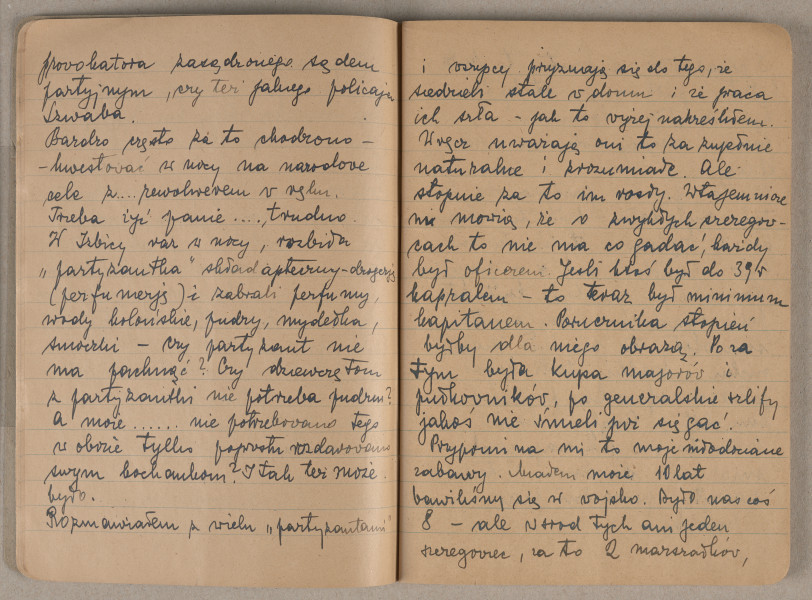 provokatora zasądzonego sądem
partyjnym, czy też jakiego policaja
Szwaba.
Bardzo często za to chodzono –
– kwestować w nocy na narodowe
cele z....rewolwerem w ręku.
Trzeba żyć panie ...., trudno.
W Izbicy raz w nocy, rozbiła
„partyzantka" skład apteczny-drogerję
(perfumerję) i zabrali perfumy,
wody kolońskie, pudry, mydełka,
smoczki – czy partyzant nie
ma pachnąć? Czy dziewczętom
z partyzantki nie potrzeba pudru?
A może ...... nie potrzebowano tego
w obozie tylko poprostu rozdarowano
swym kochankom? I tak też może
było.
Rozmawiałem z wielu „partyzantami"
i wszyscy przyznają się do tego, że
siedzieli stale w domu i że praca
ich szła – jak to wyżej nakreśliłem.
Wręcz uważają oni to za zupełnie
naturalne i zrozumiałe. Ale
stopnie za to im rosły. Wtajemniczeni
mówią, że o zwykłych szeregow-
cach to nie ma co gadać, każdy
był oficerem. Jeśli ktoś był do 39 r
kapralem – to teraz był minimum
kapitanem. Porucznika stopień
byłby dla niego obrazą. Poza
tym była kupa majorów i
pułkowników, po generalskie szlify
jakoś nie śmieli już sięgać.
Przypomina mi to moje młodociane
zabawy. Miałem może 10 lat
bawiliśmy się w wojsko. Było nas coś
8 – ale wśród tych ani jeden
szeregowiec, za to 2 marszałków,